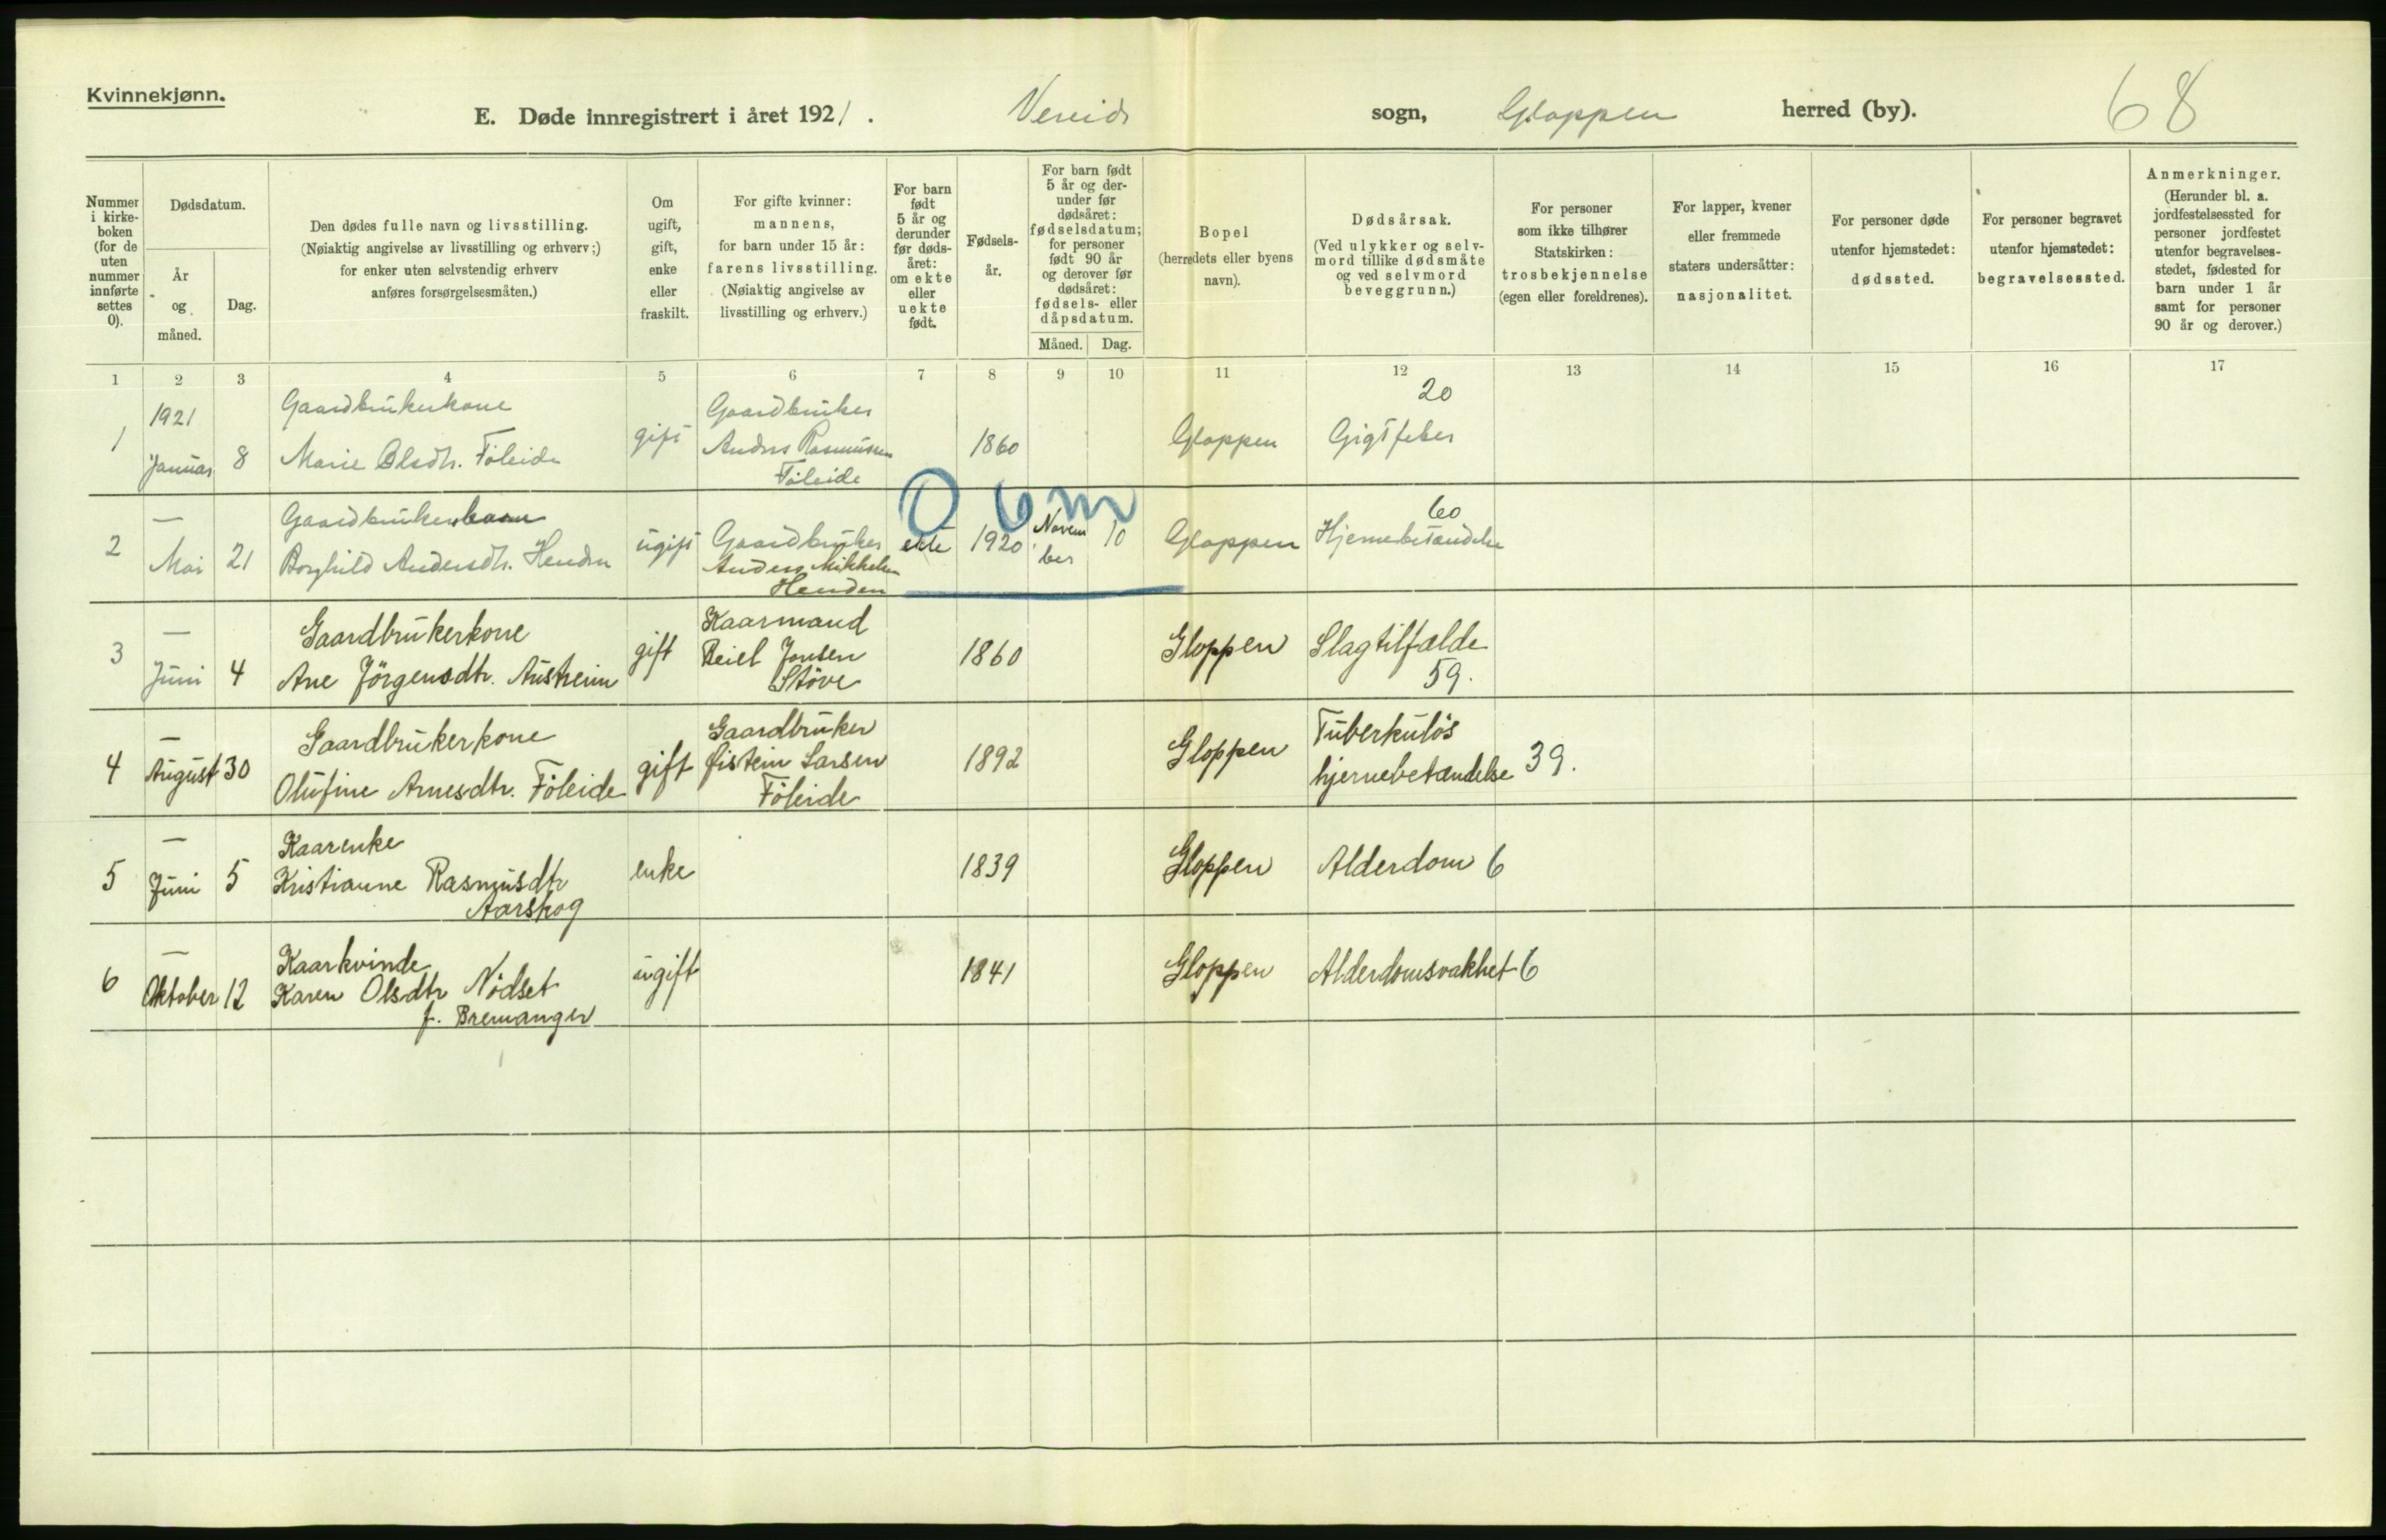 Kvinnekjønn.
E. Døde innregistrert i året 1921. Vereid sogn, Gloppen herred (by). 68
Nummer i kirke-boken (for de uten nummer innførte settes 0).
Dødsdatum.
År og måned.
Dag.
Den dødes fulle navn og livsstilling.
(Nøiaktig angivelse av livsstilling og erhverv;)
for enker uten selvstendig erhverv
anføres forsørgelsesmåten.)
Om
ugift,
gift,
enke
eller
fraskilt.
For gifte kvinner:
mannens,
for barn under 15 år:
farens livsstilling.
(Nøiaktig angivelse av
livsstilling og erhverv.)
For barn
født
5 år og
derunder
før døds-
året:
om ekte
eller
uekte
født.
Fødsels-
år.
For barn født
5 år og der-
under før
dødsåret:
fødselsdatum;
for personer
født 90 år
og derover før
dødsåret:
fødsels- eller
dåpsdatum.
Måned. Dag.
Bopel
(herredets eller byens
navn).
Dødsårsak.
(Ved ulykker og selv-
mord tillike dødsmåte
og ved selvmord
beveggrunn.)
For personer
som ikke tilhører
Statskirken:
trosbekjennelse
(egen eller foreldrenes).
For lapper, kvener
eller fremmede
staters undersåtter:
nasjonalitet.
For personer døde
utenfor hjemstedet:
dødssted.
For personer begravet
utenfor hjemstedet:
begravelsessted.
Anmerkninger.
(Herunder bl. a.
jordfestelsessted for
personer jordfestet
utenfor begravelses-
stedet, fødested for
barn under 1 år
samt for personer
90 år og derover.)
1 2 3 4 5 6 7 8 9 10 11 12 13 14 15 16 17
1921 Gaardbrukerkone Gaardbruker 20
1 Januar 8 Marie Olsdtr. Föleide gift Anders Rasmussen 1860 Gloppen Gigtfeber
Föleide
0 6 m
— Gaardbrukerbarn 60
2 Mai 21 Borghild Andersdtr. Henden ugift Gaardbruker ekte 1920 Novem 10 Gloppen Hjernebetændelse
Anders Mikkelsen ber
Henden
— Gaardbrukerkone Kaarmand
3 Juni 4 Ane Jörgensdtr. Austreim gift Reiel Jonsen 1860 Gloppen Slagtilfælde
Støve 59.
— Gaardbrukerkone Gaardbruker Tuberkuløs
4 August 30 Olufine Arnesdtr. Föleide gift Øistein Larsen 1892 Gloppen hjernebetændelse 39.
Föleide
— Kaarenke
5 Juni 5 Kristianne Rasmusdtr enke 1839 Gloppen Alderdom 6
Aarskog
— Kaarkvinde
6 Oktober 12 Karen Olsdtr Nödset ugift 1841 Gloppen Alderdomsvakhet 6
f. Bremanger